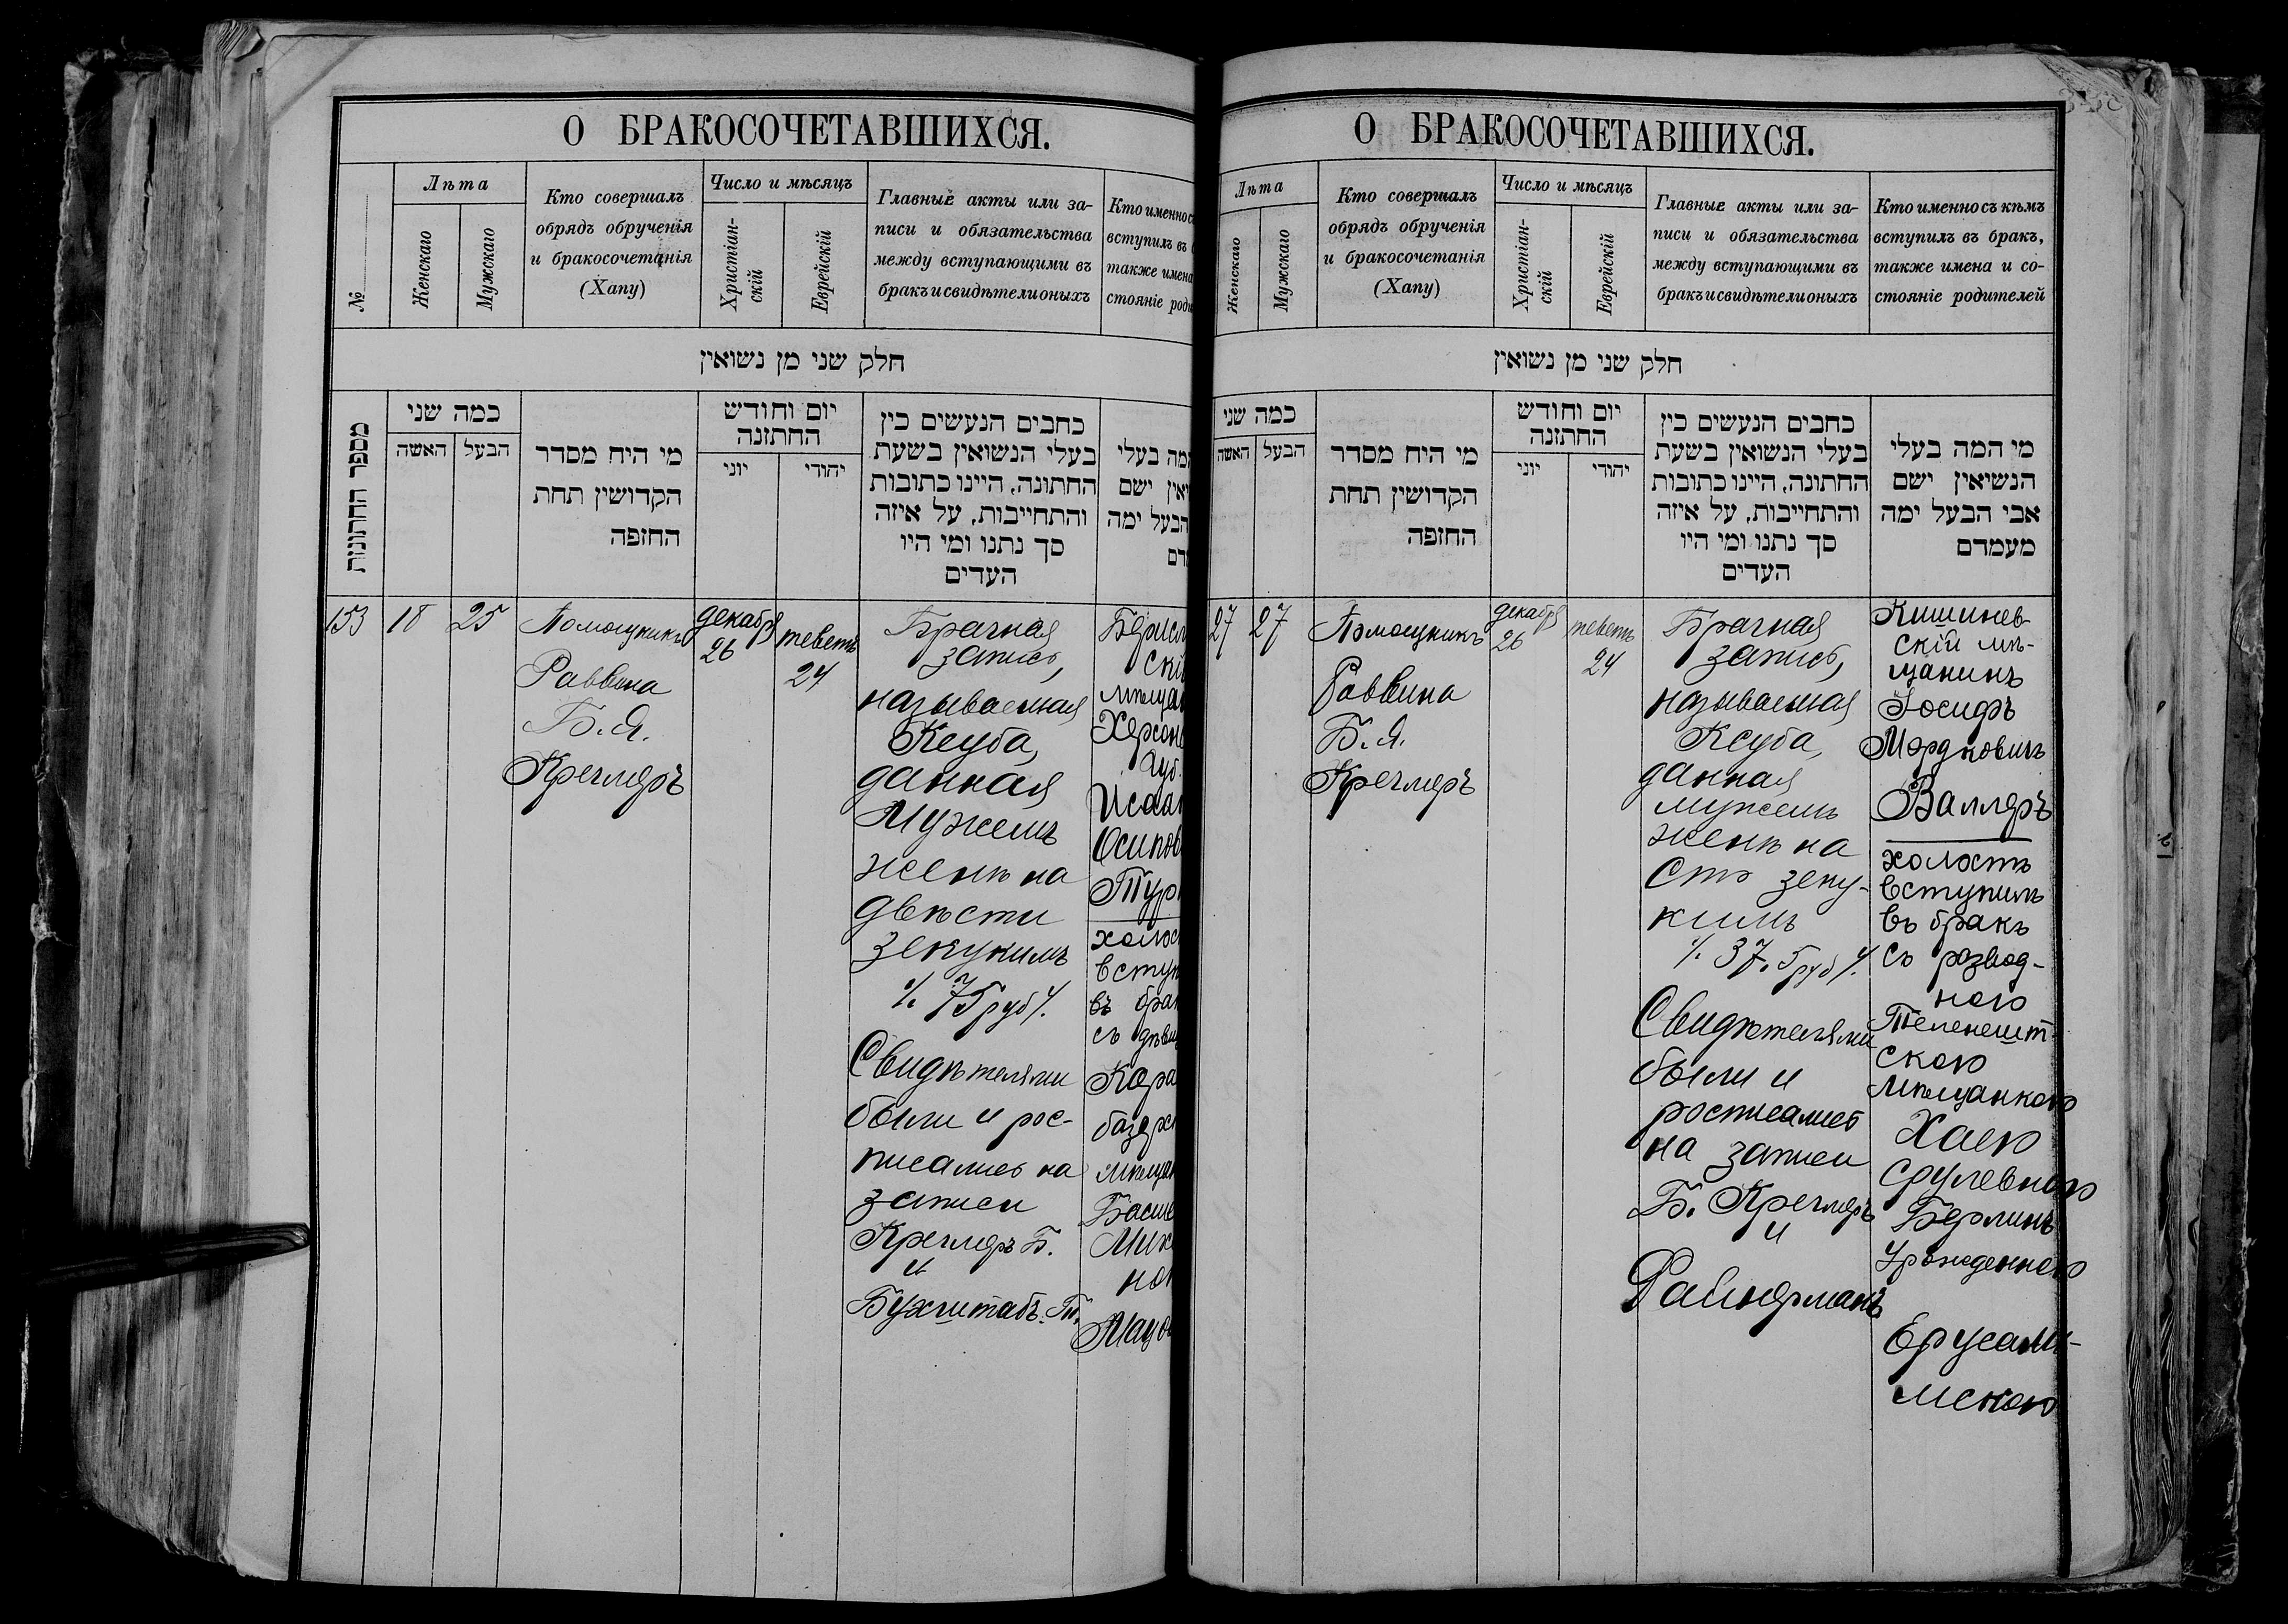 О БРАКОСОЧЕТАВШИХСЯ.
№
Лѣта
Женскаго
Мужскаго
Кто совершалъ
обрядъ обрученія
и бракосочетанія
(Хапу)
Число и мѣсяцъ
Христіан-
скій
Еврейскій
Главные акты или за-
писи и обязательства
между вступающими въ
бракъ и свидѣтели оныхъ
Кто именно с
вступилъ въ
также имена
стояніе роди
חלק שני מן נשואין
מספר החתונות
כמה שני
האשה
הבעל
מי היח מסדר
הקדושין תחת
החזפה
יום וחודש
החתזנה
יוני
יהודי
כחבים הנעשים כין
בעלי הנשואין בשעת
החתונה, היינו כתובות
והתחייבות, על איזה
סך נתנו ומי היו
העדים
המה בעלי
ואין ישם
הבעל ימה
153
18
25
Помощникъ
Раввина
Б. Я.
Кречмеръ
декабря
26
теветъ
24
Брачная
запись,
называемая
Ксуба,
данная
Мужемъ
женѣ на
двѣсти
зекукимъ
٪ 75 руб ٪.
Свидѣтелями
были и рос-
писались на
записи
Кречмеръ Б.
и
Бухштабъ. Т.
Берисл
скій
мѣщан
Херсон
Губ.
Исаа
Осипов
Тур
холос
вступ
въ бра
съ дѣви
Кара
базарс
мѣщан
Басше
Мих
но
О БРАКОСОЧЕТАВШИХСЯ.
Лѣта
Женскаго
Мужскаго
Кто совершалъ
обрядъ обрученія
и бракосочетанія
(Хапу)
Число и мѣсяцъ
Христіан-
скій
Еврейскій
Главные акты или за-
писи и обязательства
между вступающими въ
бракъ и свидѣтели оныхъ
Кто именно съ кѣмъ
вступилъ въ бракъ,
также имена и со-
стояніе родителей
חלק שני מן נשואין
כמה שני
האשה
הבעל
מי היח מסדר
הקדושין תחת
החזפה
יום וחודש
החתזנה
יוני
יהודי
כחבים הנעשים כין
בעלי הנשואין בשעת
החתונה, היינו כתובות
והתחייבות, על איזה
סך נתנו ומי היו
העדים
מי המה בעלי
הנשיאין ישם
אבי הבעל ימה
מעמדם
27
27
Помощникъ
Раввина
Б. Я.
Кречмеръ
декабря
26
теветъ
24
Брачная
запись,
называемая
Ксуба,
данная
мужемъ
женѣ на
Сто зеку-
кимъ
٪ 37.5 руб ٪.
Свидѣтелями
были и
росписались
на записи
Б. Кречмеръ
и
Файнерманъ
Кишинев-
скій мѣ-
щанинъ
Іосифъ
Мордковичъ
Валлеръ
холостъ
вступилъ
въ бракъ
съ развод-
ною
Теленешт-
скою
мѣщанкою
Хаею
Срулевною
Берлинъ
Урожденною
Ерусали-
мскою